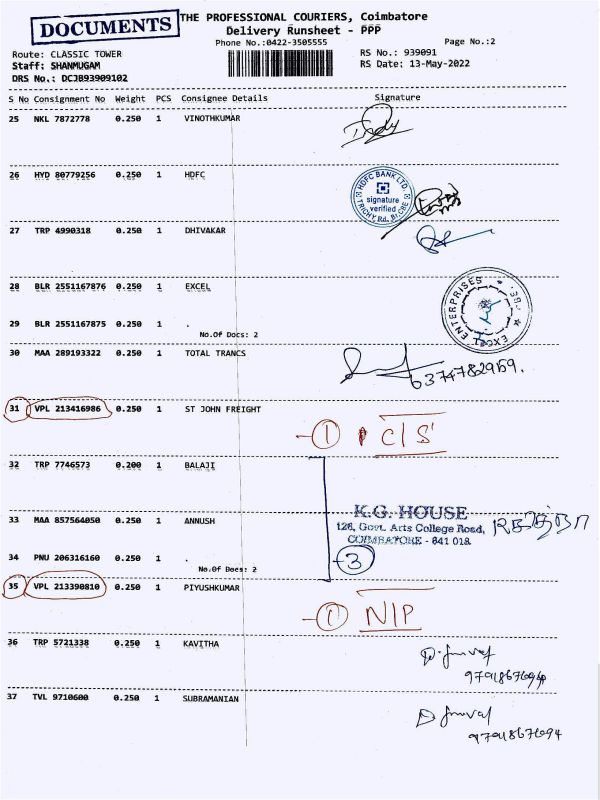 DOCUMENTS
THE PROFESSIONAL COURIERS, Coimbatore
Delivery Runsheet - PPP
Phone No.:0422-3505555
Page No.:2
Route: CLASSIC TOWER
RS No.: 939091
Staff: SHANMUGAM
RS Date: 13-May-2022
DRS No.: DCJB93909102
S No Consignment No Weight PCS Consignee Details Signature
25 NKL 7872778 0.250 1 VINOTHKUMAR
26 HYD 80779256 0.250 1 HDFC
HDFC BANK LTD.
signature
verified
TRICHY Rd. Br. CBE
27 TRP 4990318 0.250 1 DHIVAKAR
28 BLR 2551167876 0.250 1 EXCEL
EXCEL ENTERPRISES * CBE *
29 BLR 2551167875 0.250 1 .
No.Of Docs: 2
30 MAA 289193322 0.250 1 TOTAL TRANCS
6374782959.
31 VPL 213416986 0.250 1 ST JOHN FREIGHT
-① C/S
32 TRP 7746573 0.200 1 BALAJI
K.G. HOUSE
126, Govt. Arts College Road,
COIMBATORE - 641 018
33 MAA 857564050 0.250 1 ANNUSH
34 PNU 206316160 0.250 1 .
No.Of Docs: 2
-③
35 VPL 213390810 0.250 1 PIYUSHKUMAR
-① N/P
36 TRP 5721338 0.250 1 KAVITHA
9791867694
37 TVL 9710600 0.250 1 SUBRAMANIAN
9791867694